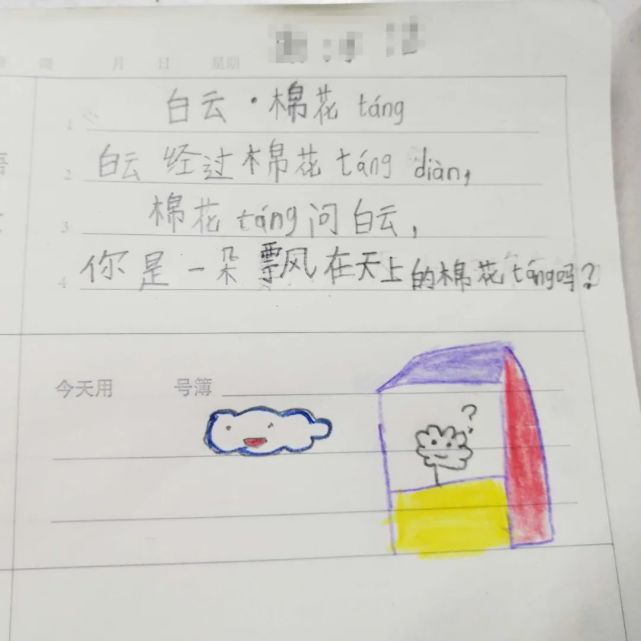 月 日 星期
1 白云·棉花táng
2 白云经过棉花táng diàn,
3 棉花táng问白云,
4 你是一朵飘风在天上的棉花táng吗?
今天用 号簿
?